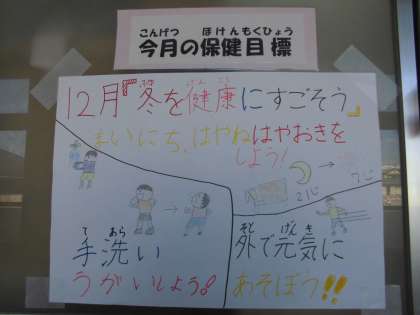 こんげつ ほけんもくひょう
今月の保健目標
12月『冬を健康にすごそう』
ふゆ けん こう
まいにち、はやねはやおきを
しよう!
21じ
7じ
て あら
手洗い
うがいしよう!
そと げん き
外で元気に
あそぼう!!